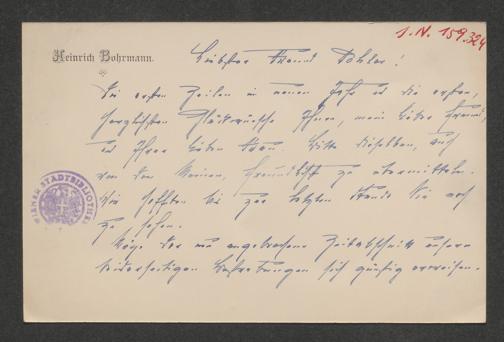 I.N. 159.324
Heinrich Bohrmann.
Liebster Freund Dohler!
Die ersten Zeilen im neuen Jahr und die ersten,
herzlichsten Glückwünsche Ihnen, mein lieber Freund,
und Ihrer lieben Frau. Bitte dieselben, auch
von den Meinen, freundlichst zu übermitteln.
Wir hofften bis zur letzten Stunde Sie noch
zu sehen.
Möge der neu angebrochene Zeitabschnitt unsern
beiderseitigen Bestrebungen sich günstig erweisen.
WIENER STADTBIBLIOTHEK